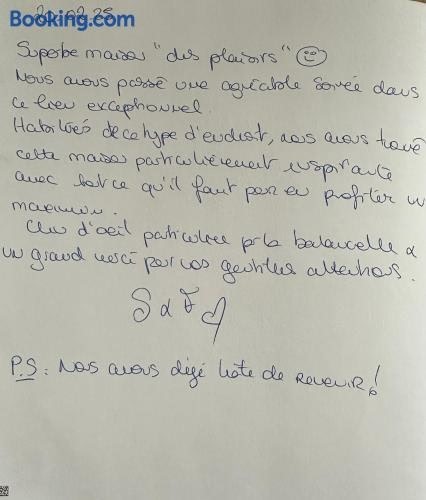 Booking.com
Superbe maison "des plaisirs" ☺
Nous avons passé une agréable soirée dans
ce lieu exceptionnel.
Habitués de ce type d'endroit, nous avons trouvé
cette maison particulièrement inspirante
avec tout ce qu'il faut pour en profiter un
maximum.
Clin d'oeil particulier pr la balancelle &
un grand merci pour vos gentilles attentions.
S & F
P.S : Nous avons déjà hâte de revenir !